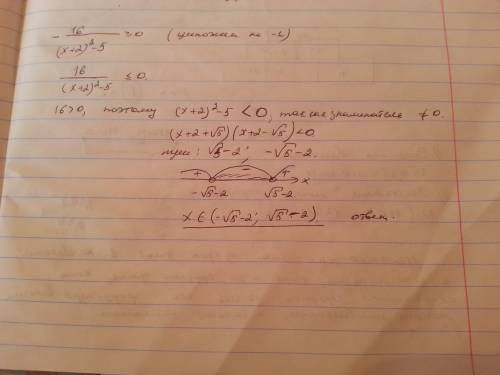 - 16/((x+2)²-5) ≥ 0 (умножим на -1)
16/((x+2)²-5) ≤ 0.
16>0, поэтому (x+2)²-5 < 0, так как знаменатель ≠ 0.
(x+2+√5)(x+2-√5)<0
нули: √5-2; -√5-2.
+ - + x
-√5-2 √5-2
x ∈ (-√5-2; √5-2) ответ.